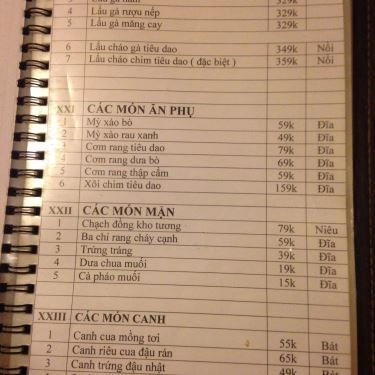 3 Lẩu gà nấm 329k
4 Lẩu gà rượu nếp 329k
5 Lẩu gà măng cay 329k
6 Lẩu cháo gà tiêu dao 349k Nồi
7 Lẩu cháo chim tiêu dao ( đặc biệt ) 359k Nồi
XXI CÁC MÓN ĂN PHỤ
1 Mỳ xào bò 59k Đĩa
2 Mỳ xào rau xanh 49k Đĩa
3 Cơm rang tiêu dao 79k Đĩa
4 Cơm rang dưa bò 69k Đĩa
5 Cơm rang thập cẩm 59k Đĩa
6 Xôi chim tiêu dao 159k Đĩa
XXII CÁC MÓN MẶN
1 Chạch đồng kho tương 79k Niêu
2 Ba chỉ rang cháy cạnh 59k Đĩa
3 Trứng tráng 39k Đĩa
4 Dưa chua muối 19k Đĩa
5 Cà pháo muối 15k Đĩa
XXIII CÁC MÓN CANH
1 Canh cua mồng tơi 55k Bát
2 Canh riêu cua đậu rán 65k Bát
3 Canh trứng đậu nhật 49k Bát